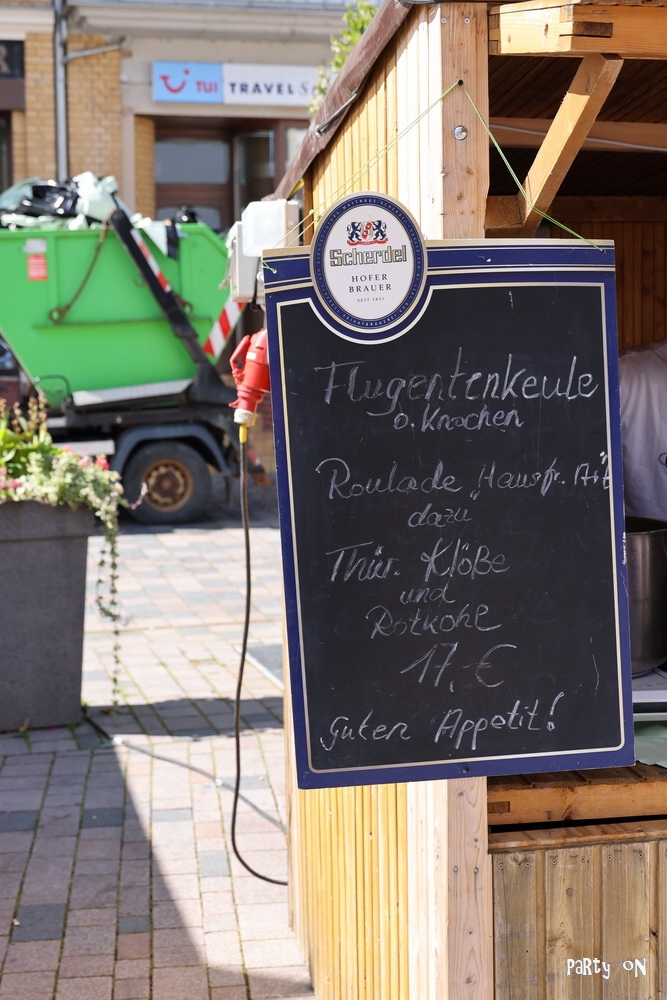 TUI TRAVELS
Scherdel
HOFER
BRAUER
SEIT 1831
Flugentenkeule
o. Knochen
Roulade "Hausfr. Art
dazu
Thür. Klöße
und
Rotkohl
17,- €
Guten Appetit!
PARTY ON